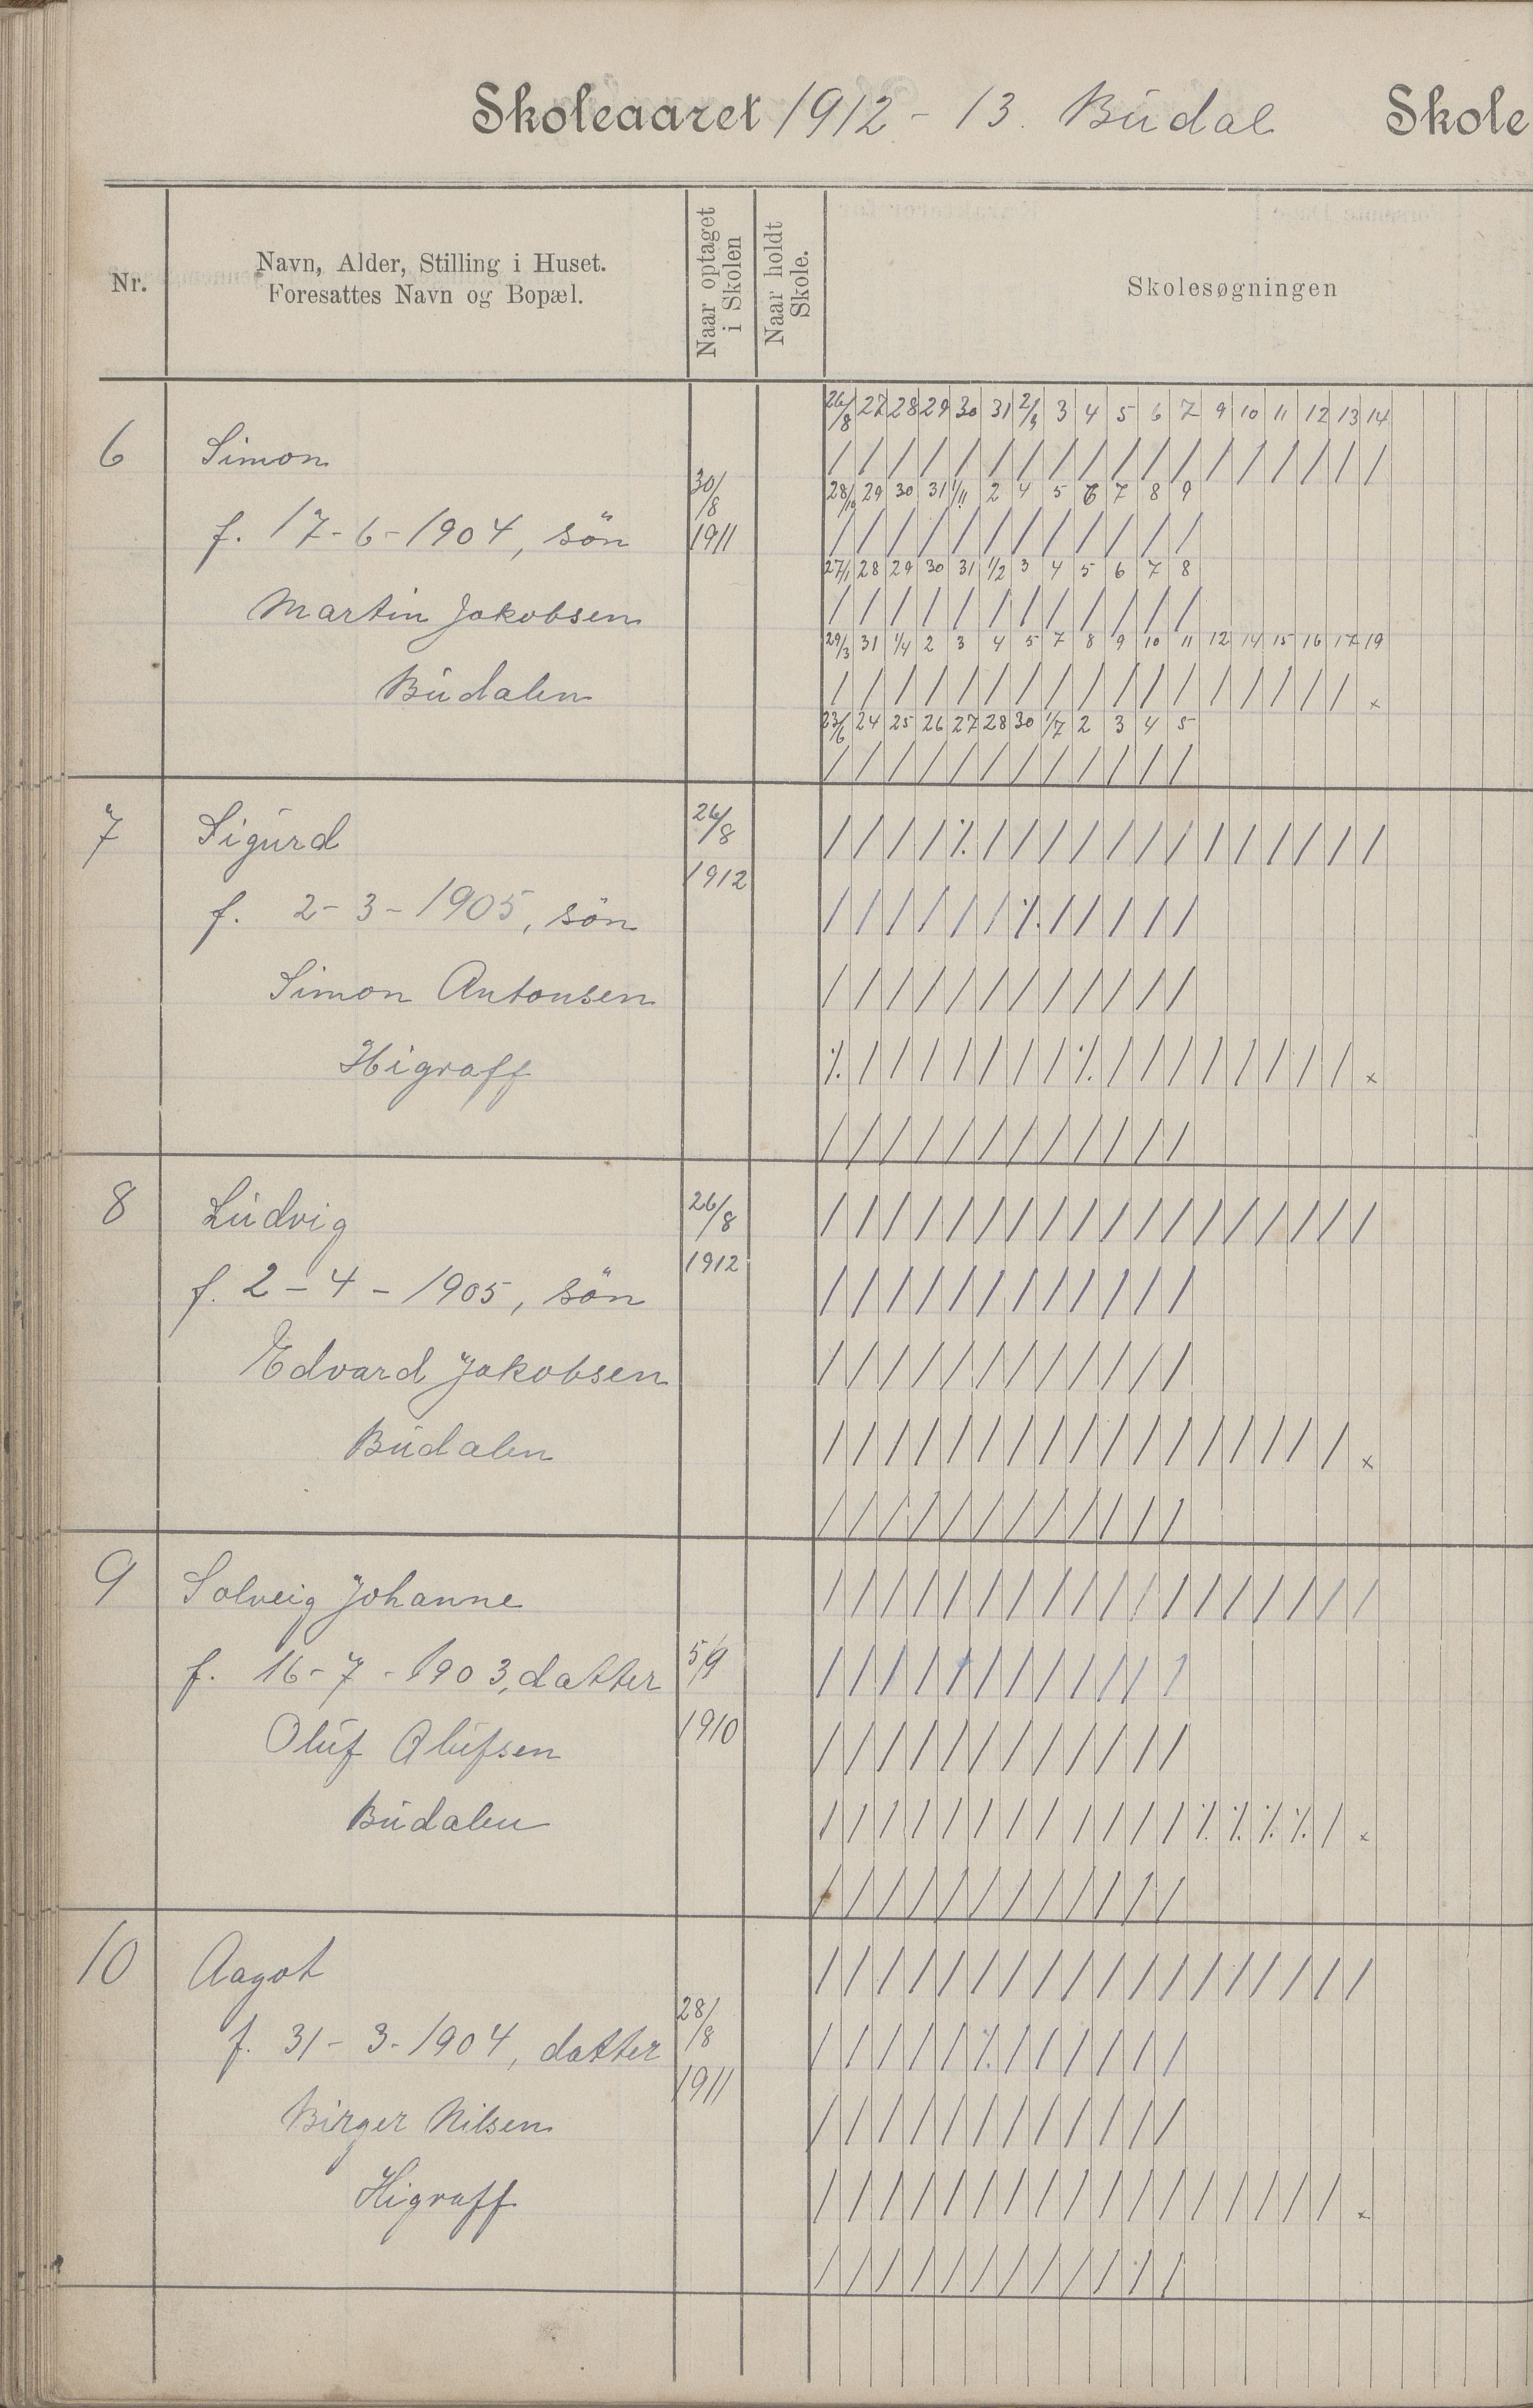 Skoleaaret 1912-13. Búdal Skole
Nr.
Navn, Alder, Stilling i Huset.
Foresattes Navn og Bopæl.
Naar optaget
i Skolen
Naar holdt
Skole.
Skolesøgningen
26/8 27 28 29 30 31 2/9 3 4 5 6 7 9 10 11 12 13 14
6 Simon / / / / / / / / / / / / / / / / / /
30/8 28/10 29 30 31 1/11 2 4 5 6 7 8 9
f. 17-6-1904, sön 1911 / / / / / / / / / / / /
27/1 28 29 30 31 1/2 3 4 5 6 7 8
Martin Jakobsen / / / / / / / / / / / /
29/3 31 1/4 2 3 4 5 7 8 9 10 11 12 14 15 16 17 19
Búdalen / / / / / / / / / / / / / / / / / x
23/6 24 25 26 27 28 30 1/7 2 3 4 5
/ / / / / / / / / / / /
7 Sigúrd 26/8 / / / / ⁒ / / / / / / / / / / / / /
1912
f. 2-3-1905, sön / / / / / / ⁒ / / / / /
Simon Antonsen / / / / / / / / / / / /
Higraff ⁒ / / / / / / / ⁒ / / / / / / / / x
/ / / / / / / / / / / /
8 Lúdvig 26/8 / / / / / / / / / / / / / / / / / /
1912
f. 2-4-1905, sön / / / / / / / / / / / /
Edvard Jakobsen / / / / / / / / / / / /
Búdalen / / / / / / / / / / / / / / / / / x
/ / / / / / / / / / / /
9 Solveig Johanne / / / / / / / / / / / / / / / / / /
f. 16-7-1903, datter 5/9 / / / / / / / / / / / /
1910
Olúf Olúfsen / / / / / / / / / / / /
Búdalen / / / / / / / / / / / / ⁒ ⁒ ⁒ ⁒ / x
/ / / / / / / / / / / /
10 Aagot / / / / / / / / / / / / / / / / / /
28/8
f. 31-3-1904, datter / / / / / ⁒ / / / / / /
1911
Birger Nilsen / / / / / / / / / / / /
Higraff / / / / / / / / / / / / / / / / / x
/ / / / / / / / / / ⁒ /